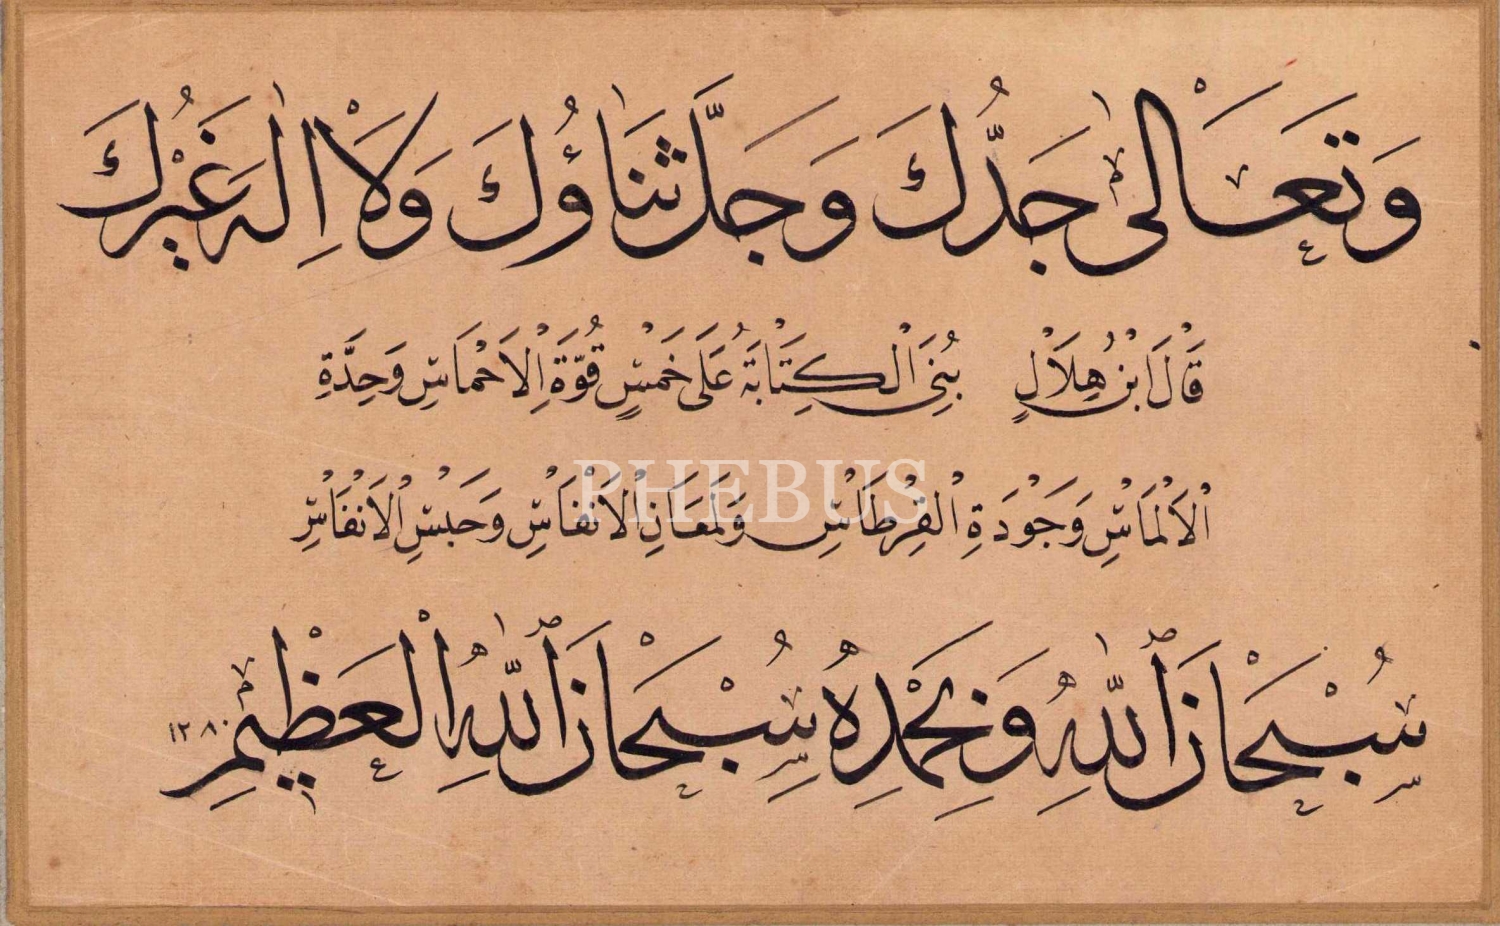 وَتَعَالٰى جَدُّكَ وَجَلَّ ثَنَاؤُكَ وَلَاْ اِلٰهَ غَيْرُكَ
قَالَ ابْنُ هِلَالْ بُنِيَ الْكِتَابَةُ عَلَى خَمْسٍ قُوَّةَ الْاَحْمَاسِ وَحِدَّةِ
الْاَلْمَاسِ وَجَوْدَةِ الْقِرْطَاسِ وَلَمَعَانِ الْاَنْفَاسِ وَحَبْسِ الْاَنْفَاسِ
سُبْحَانَ اللّٰهِ وَبِحَمْدِهِ سُبْحَانَ اللّٰهِ الْعَظِيْمِ ١٢٨٠
PHEBUS